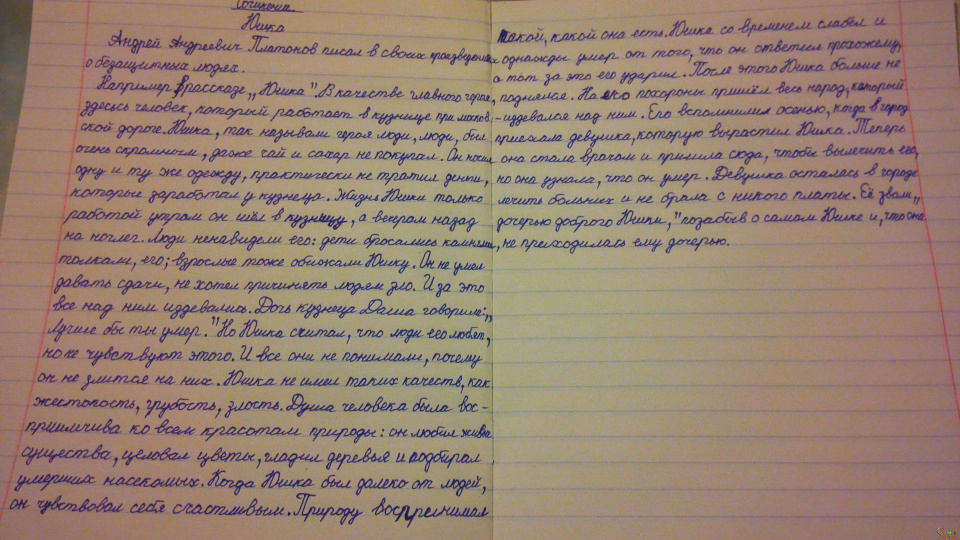 Сочинение.
Юшка
Андрей Андреевич Платонов писал в своих произведениях
о беззащитных людях.
Например в рассказе „Юшка". В качестве главного героя,
здесь человек, который работает в кузнице при москов
ской дороге. Юшка, так называли героя люди, люди, был
очень скромным, даже чай и сахар не покупал. Он носил
одну и ту же одежду, практически не тратил деньги,
которые заработал у кузнеца. Жизнь Юшки только
работой утром он шёл в кузницу, а вечером назад
на ночлег. Люди ненавидели его: дети бросались камнями
толкали, его; взрослые тоже обижали Юшку. Он не умел
давать сдачи, не хотел причинять людям зло. И за это
все над ним издевались. Дочь кузнеца Даша говорила: „
Лучше бы ты умер." Но Юшка считал, что люди его любят,
но не чувствуют этого. И все они не понимали, почему
он не злится на них. Юшка не имел таких качеств, как
жестокость, грубость, злость. Душа человека была вос-
приимчива ко всем красотам природы: он любил живые
существа, целовал цветы, гладил деревья и подбирал
умерших насекомых. Когда Юшка был далеко от людей,
он чувствовал себя счастливым. Природу воспринимал
такой, какой она есть. Юшка со временем слабел и
однажды умер от того, что он ответил прохожему,
а тот за это его ударил. После этого Юшка больше не
поднялся. На его похороны пришёл весь народ, который
издевался над ним. Его вспомнили осенью, когда в город
приехала девушка, которую вырастил Юшка. Теперь
она стала врачом и пришла сюда, чтобы вылечить его,
но она узнала, что он умер. Девушка осталась в городе
лечить больных и не брала с никого платы. Её звали „
дочерью доброго Юшки," позабыв о самом Юшке и, что она
не приходилась ему дочерью.